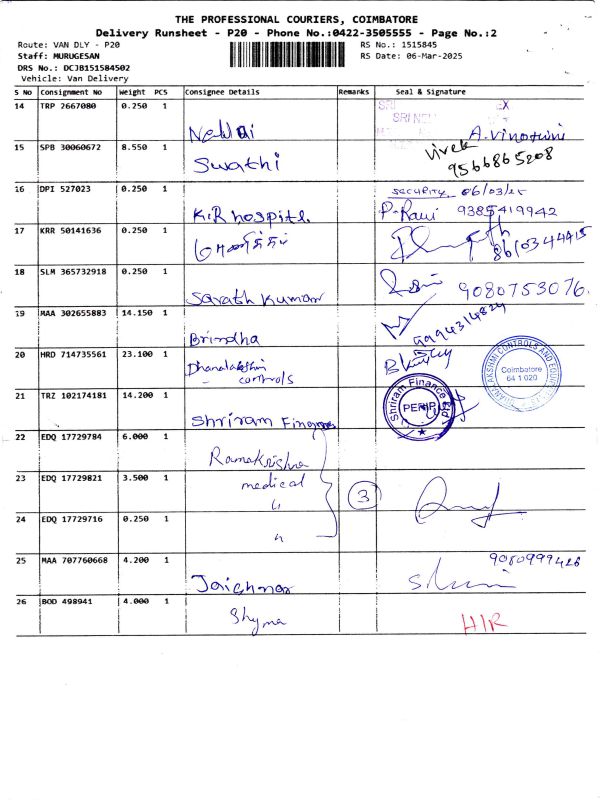 THE PROFESSIONAL COURIERS, COIMBATORE
Delivery Runsheet - P20 - Phone No.:0422-3505555 - Page No.:2
Route: VAN DLY - P20 RS No.: 1515845
Staff: MURUGESAN RS Date: 06-Mar-2025
DRS No.: DCJB151584502
Vehicle: Van Delivery
S No Consignment No Weight PCS Consignee Details Remarks Seal & Signature
14 TRP 2667080 0.250 1
A.Vinothini
15 SPB 30060672 8.550 1 Swathi Vivek
9566865208
16 DPI 527023 0.250 1 security 06/03/25
K.R hospitl. P. Ravi 9385419942
17 KRR 50141636 0.250 1
8610344415
18 SLM 365732918 0.250 1
Sarath Kumar 9080753076.
19 MAA 302655883 14.150 1 9994314829
Brindha
20 HRD 714735561 23.100 1 Dhanalakshmi
controls
LAKSHMI CONTROLS AND
Coimbatore
641 020
21 TRZ 102174181 14.200 1 Shriram Finance
Shriram Finance Ltd
22 EDQ 17729784 6.000 1 Ramakrishna
23 EDQ 17729821 3.500 1 medical 3
"
24 EDQ 17729716 0.250 1
"
25 MAA 707760668 4.200 1 9080999426
26 BOD 498941 4.000 1 Shyma H/R